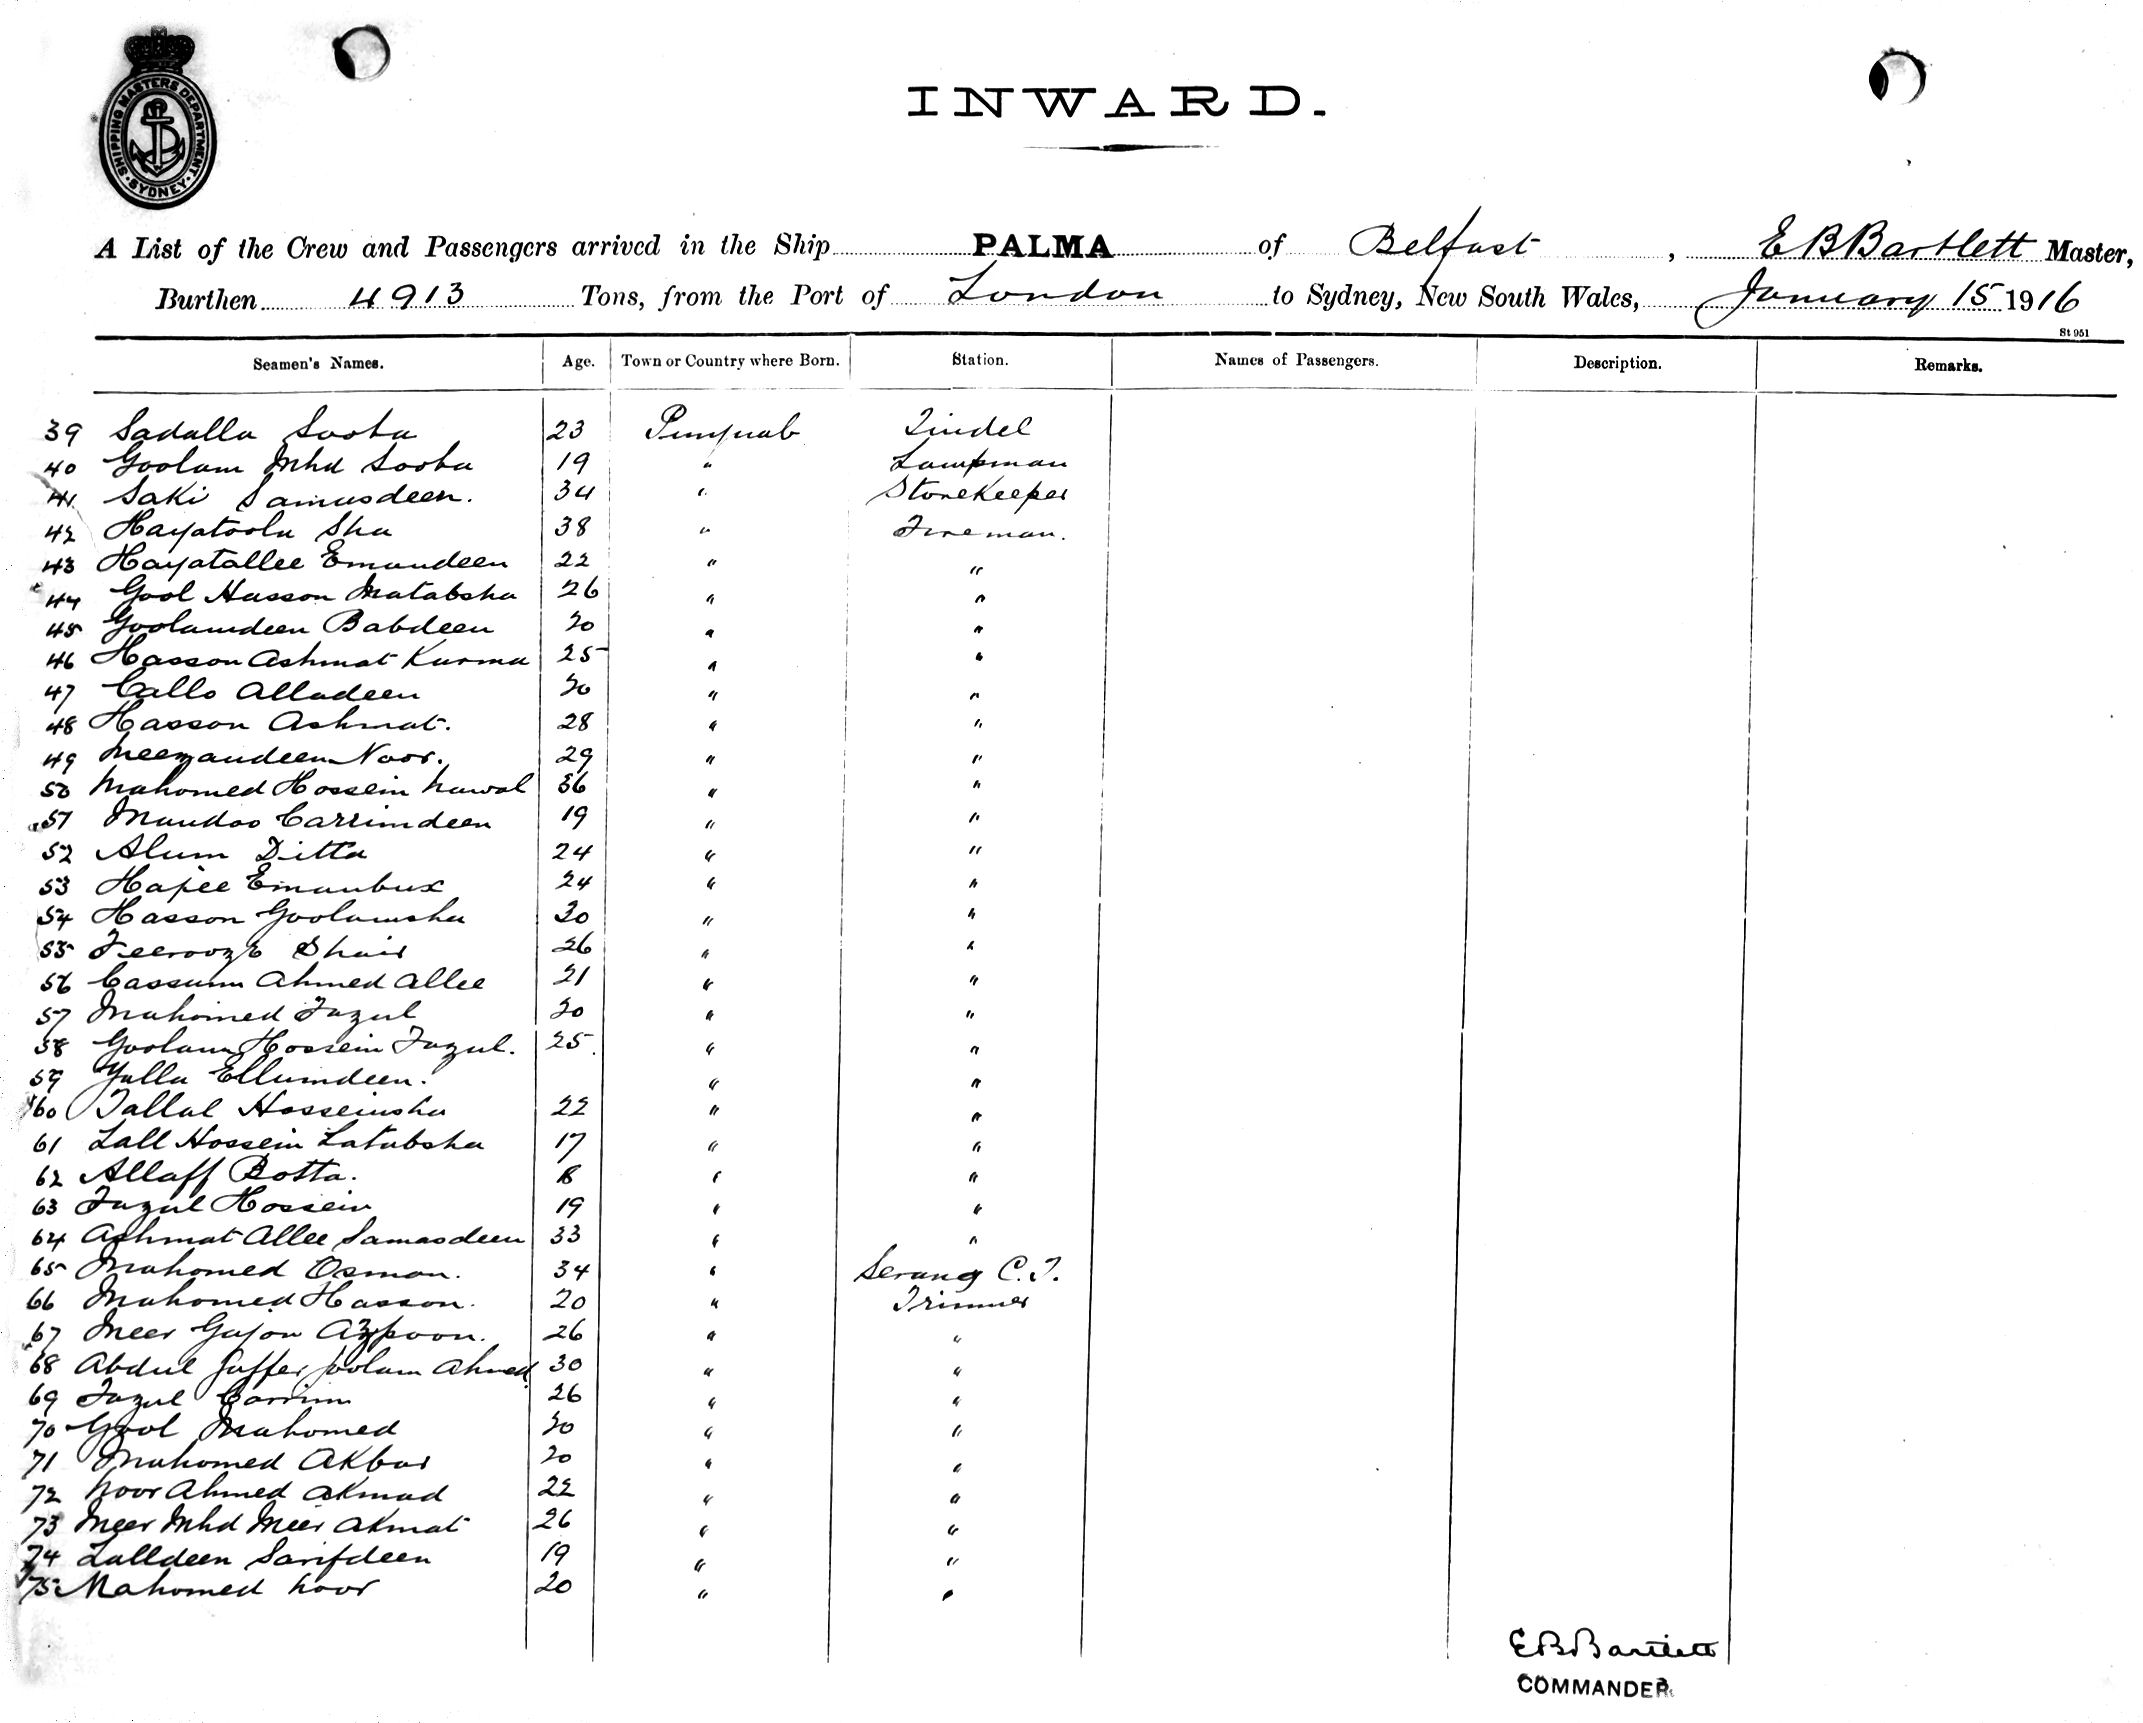 SHIPPING MASTERS DEPARTMENT
SYDNEY
INWARD.
A List of the Crew and Passengers arrived in the Ship PALMA of Belfast, E B Bartlett Master,
Burthen 4913 Tons, from the Port of London to Sydney, New South Wales, January 15 1916
St 951
Seamen's Names. Age. Town or Country where Born. Station. Names of Passengers. Description. Remarks.
39 Sadalla Sooba 23 Punjaub Tindel
40 Goolam Mhd Sooba 19 " Lampman
41 Saki Samusdeen. 34 " StoreKeeper
42 Hayatoola Sha 38 " Fireman.
43 Hayatallee Emamdeen 22 " "
44 Gool Hasson Matabsha 26 " "
45 Goolamdeen Babdeen 20 " "
46 Hasson Ashmat Kurma 25 " "
47 Callo Alladeen 30 " "
48 Hasson Ashmat. 28 " "
49 Meezandeen Noor. 29 " "
50 Mahomed Hossein Nawal 36 " "
51 Mandoo Carrimdeen 19 " "
52 Alum Ditta 24 " "
53 Hajee Emambux 24 " "
54 Hasson Goolamsha 30 " "
55 Feerooze Shair 26 " "
56 Cassum Ahmed Allee 21 " "
57 Mahomed Fazul 20 " "
58 Goolam Hossein Fazul. 25 " "
59 Yulla Ellumdeen. " "
60 Tallal Hosseinsha 22 " "
61 Lall Hossein Latabsha 17 " "
62 Allaff Botta. " "
63 Fazul Hossein 19 " "
64 Ashmat Allee Samasdeen 33 " "
65 Mahomed Osman. 34 " Serang C.T.
66 Mahomed Hasson. 20 " Trimmer
67 Meer Gajon 26 " "
68 Abdul Gaffer Goolam Ahmed 30 " "
69 Fazul Carrim 26 " "
70 Gool Mahomed 30 " "
71 Mahomed Akbar 20 " "
72 Noor Ahmed Akmad 22 " "
73 Meer Mhd Meer Akmat 26 " "
74 Lalldeen Sarifdeen 19 " "
75 Mahomed Noor 20 " "
E B Bartlett
COMMANDER.